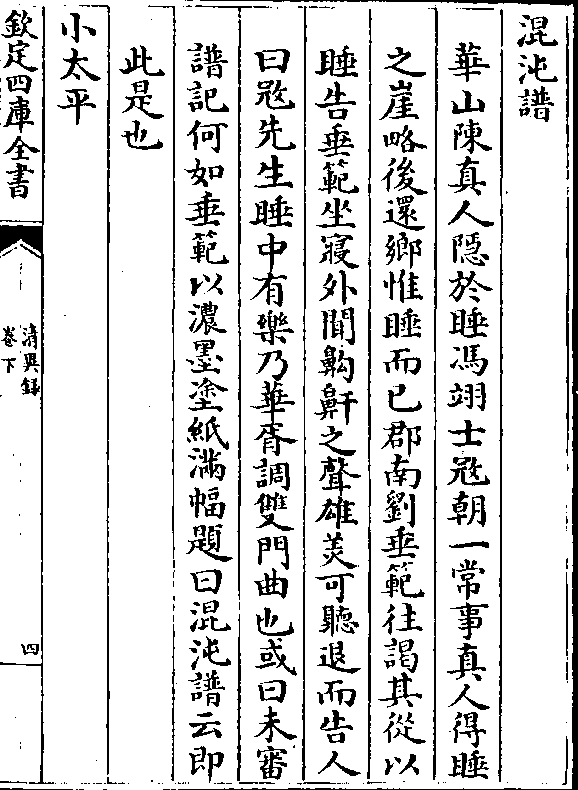 混沌譜
華山陳真人隠於睡馮翊士冦朝一常事真人得睡
之崖略後還鄉惟睡而已郡南劉垂範往謁其從以
睡告垂範坐寢外聞齁鼾之聲雄美可聽退而告人
曰冦先生睡中有樂乃華胥調雙門曲也或曰未審
譜記何如垂範以濃墨塗紙滿幅題曰混沌譜云即
此是也
小太平
欽定四庫全書
清異録
卷下
四